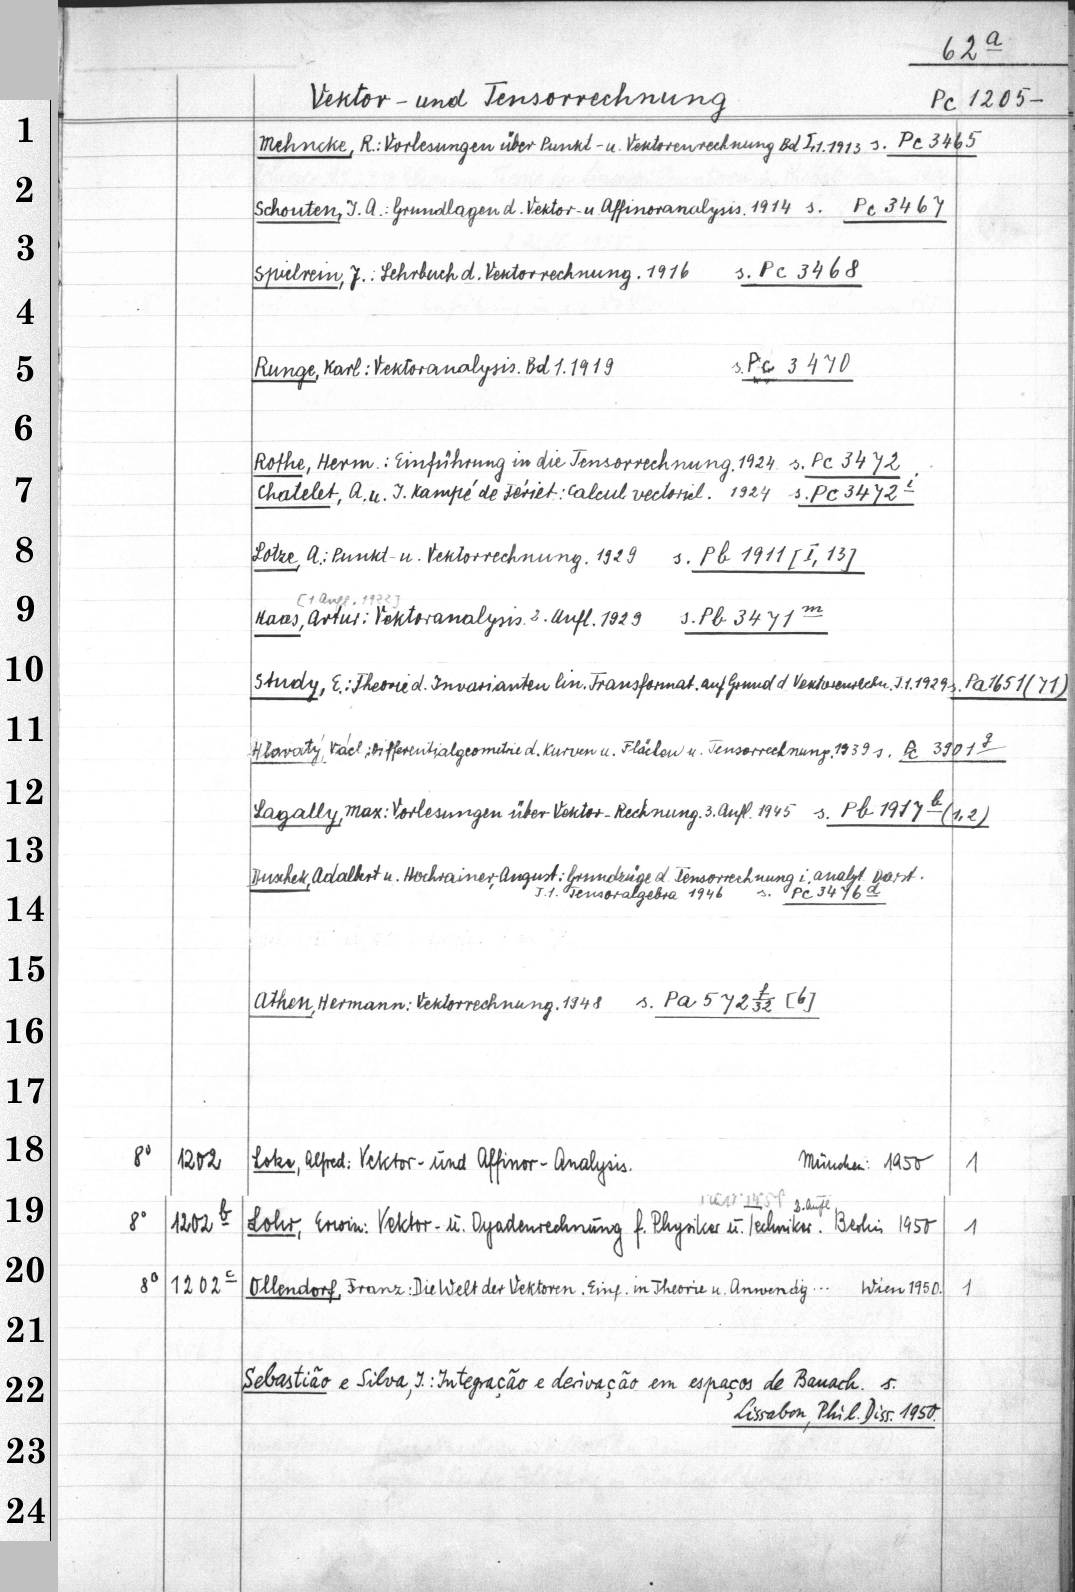 62a
Vektor - und Tensorrechnung Pc 1205-
1 Mehmcke, R.: Vorlesungen über Punkt - u. Vektorenrechnung Bd I,1. 1913 s. Pc 3465
2 Schouten, J. A.: Grundlagen d. Vektor- u. Affinoranalysis. 1914 s. Pc 3467
3 Spielrein, J.: Lehrbuch d. Vektorrechnung. 1916 s. Pc 3468
4
5 Runge, Karl: Vektoranalysis. Bd 1. 1919 s. Pc 3470
6
Rothe, Herm.: Einführung in die Tensorrechnung. 1924 s. Pc 3472
7 Chatelet, A. u. J. Kampé de Fériet: Calcul vectoriel. 1924 s. Pc 3472 i
8 Lotze, A.: Punkt- u. Vektorrechnung. 1929 s. Pb 1911 [I, 13]
[1 Aufl. 1922]
9 Haas, Artur: Vektoranalysis. 2. Aufl. 1929 s. Pb 3471 m
10 Study, E.: Theorie d. Invarianten lin. Transformat. auf Grund d Vektorenrechn. T.1. 1929 s. Pa 1651 (71)
11 Hlavatý, Václ.: Differentialgeometrie d. Kurven u. Flächen u. Tensorrechnung. 1939 s. Pc 3901 g
12 Lagally, Max: Vorlesungen über Vektor-Rechnung. 3. Aufl. 1945 s. Pb 1917 b (1,2)
13 Duschek, Adalbert u. Hochrainer, August: Grundzüge d Tensorrechnung i. analyt. Darst.
14 T.1. Tensoralgebra 1946 s. Pc 3476 d
15
16 Athen, Hermann: Vektorrechnung. 1948 s. Pa 572 f/32 [6]
17
18 8° 1202 Lotze, Alfred: Vektor- und Affinor-Analysis. München: 1950 1
2. Aufl
19 8° 1202 b Lohr, Erwin: Vektor- u. Dyadenrechnung f. Physiker u. Techniker. Berlin 1950 1
20 8° 1202 c Ollendorf, Franz: Die Welt der Vektoren. Einf. in Theorie u. Anwendg ... Wien 1950. 1
21
22 Sebastião e Silva, J.: Integração e derivação em espaços de Banach. s.
Lissabon, Phil. Diss. 1950.
23
24